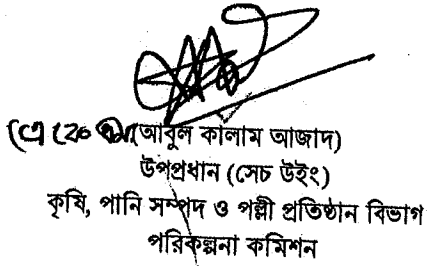 (এ কে এম আবুল কালাম আজাদ)
উপপ্রধান (সেচ উইং)
কৃষি, পানি সম্পদ ও পল্লী প্রতিষ্ঠান বিভাগ
পরিকল্পনা কমিশন